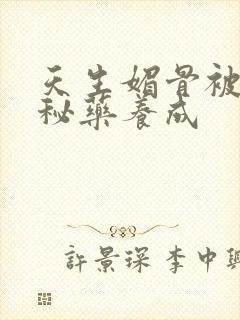 天生媚骨被
秘藥養成
許景琛 李中興